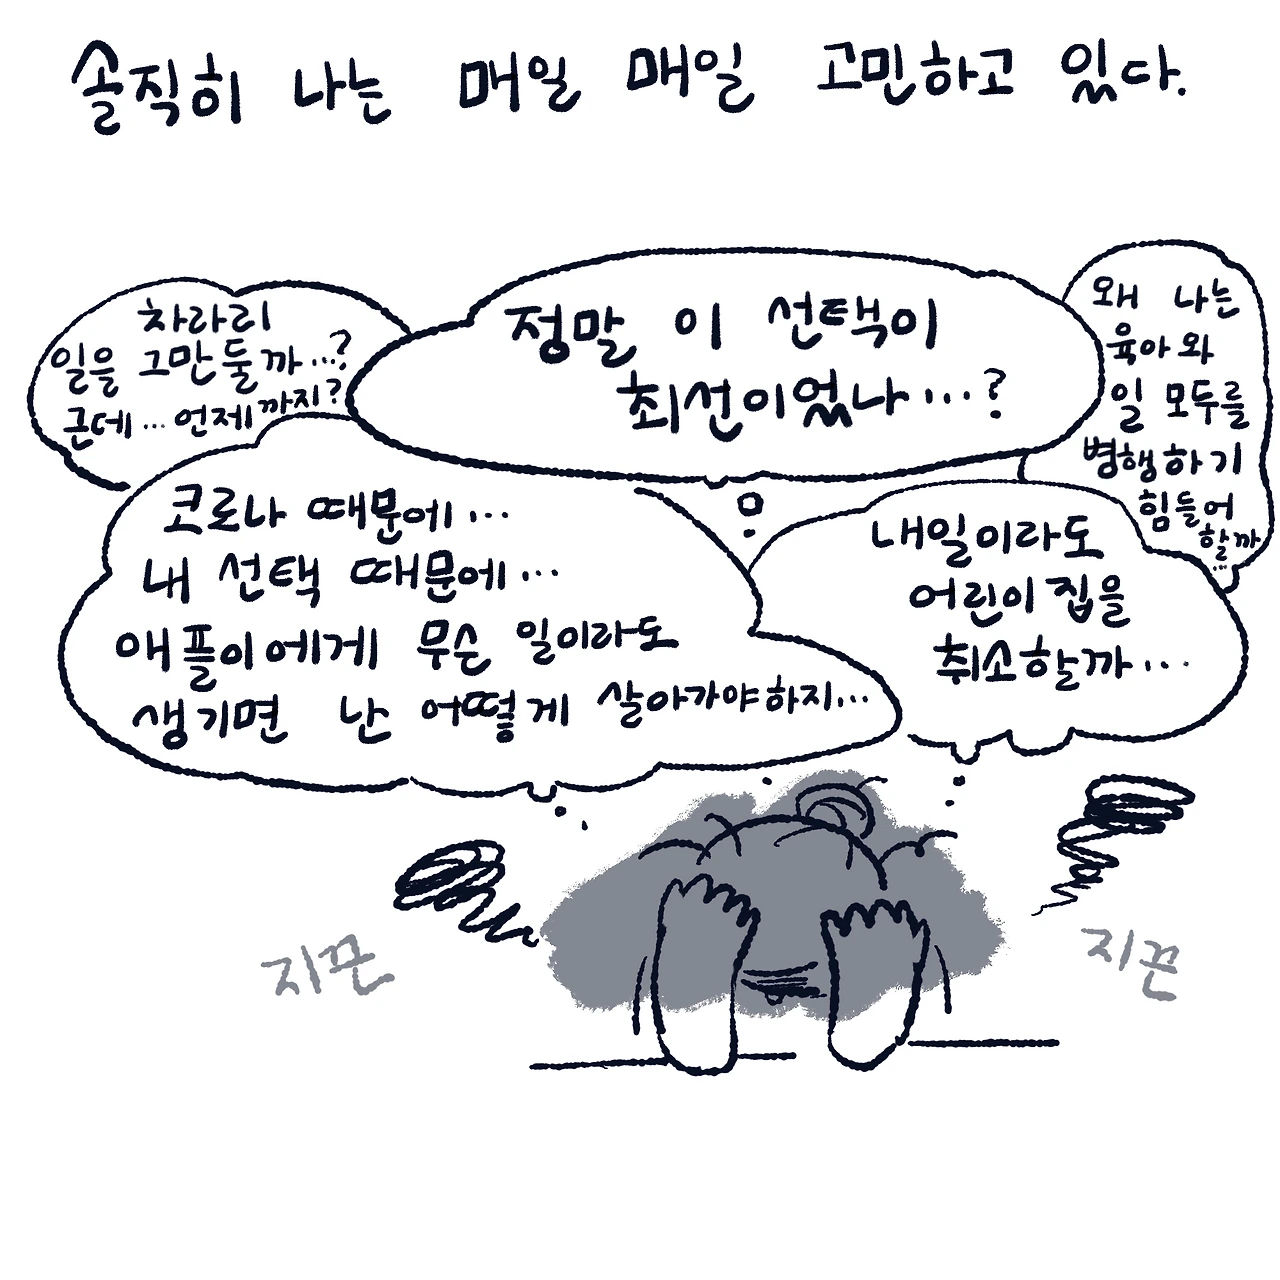 솔직히 나는 매일 매일 고민하고 있다.
차라리
일을 그만둘까...?
근데... 언제까지?
정말 이 선택이
최선이었나...?
왜 나는
육아와
일 모두를
병행하기
힘들어
할까
...
코로나 때문에...
내 선택 때문에...
애플이에게 무슨 일이라도
생기면 난 어떻게 살아가야하지...
내일이라도
어린이집을
취소할까...
지끈
지끈